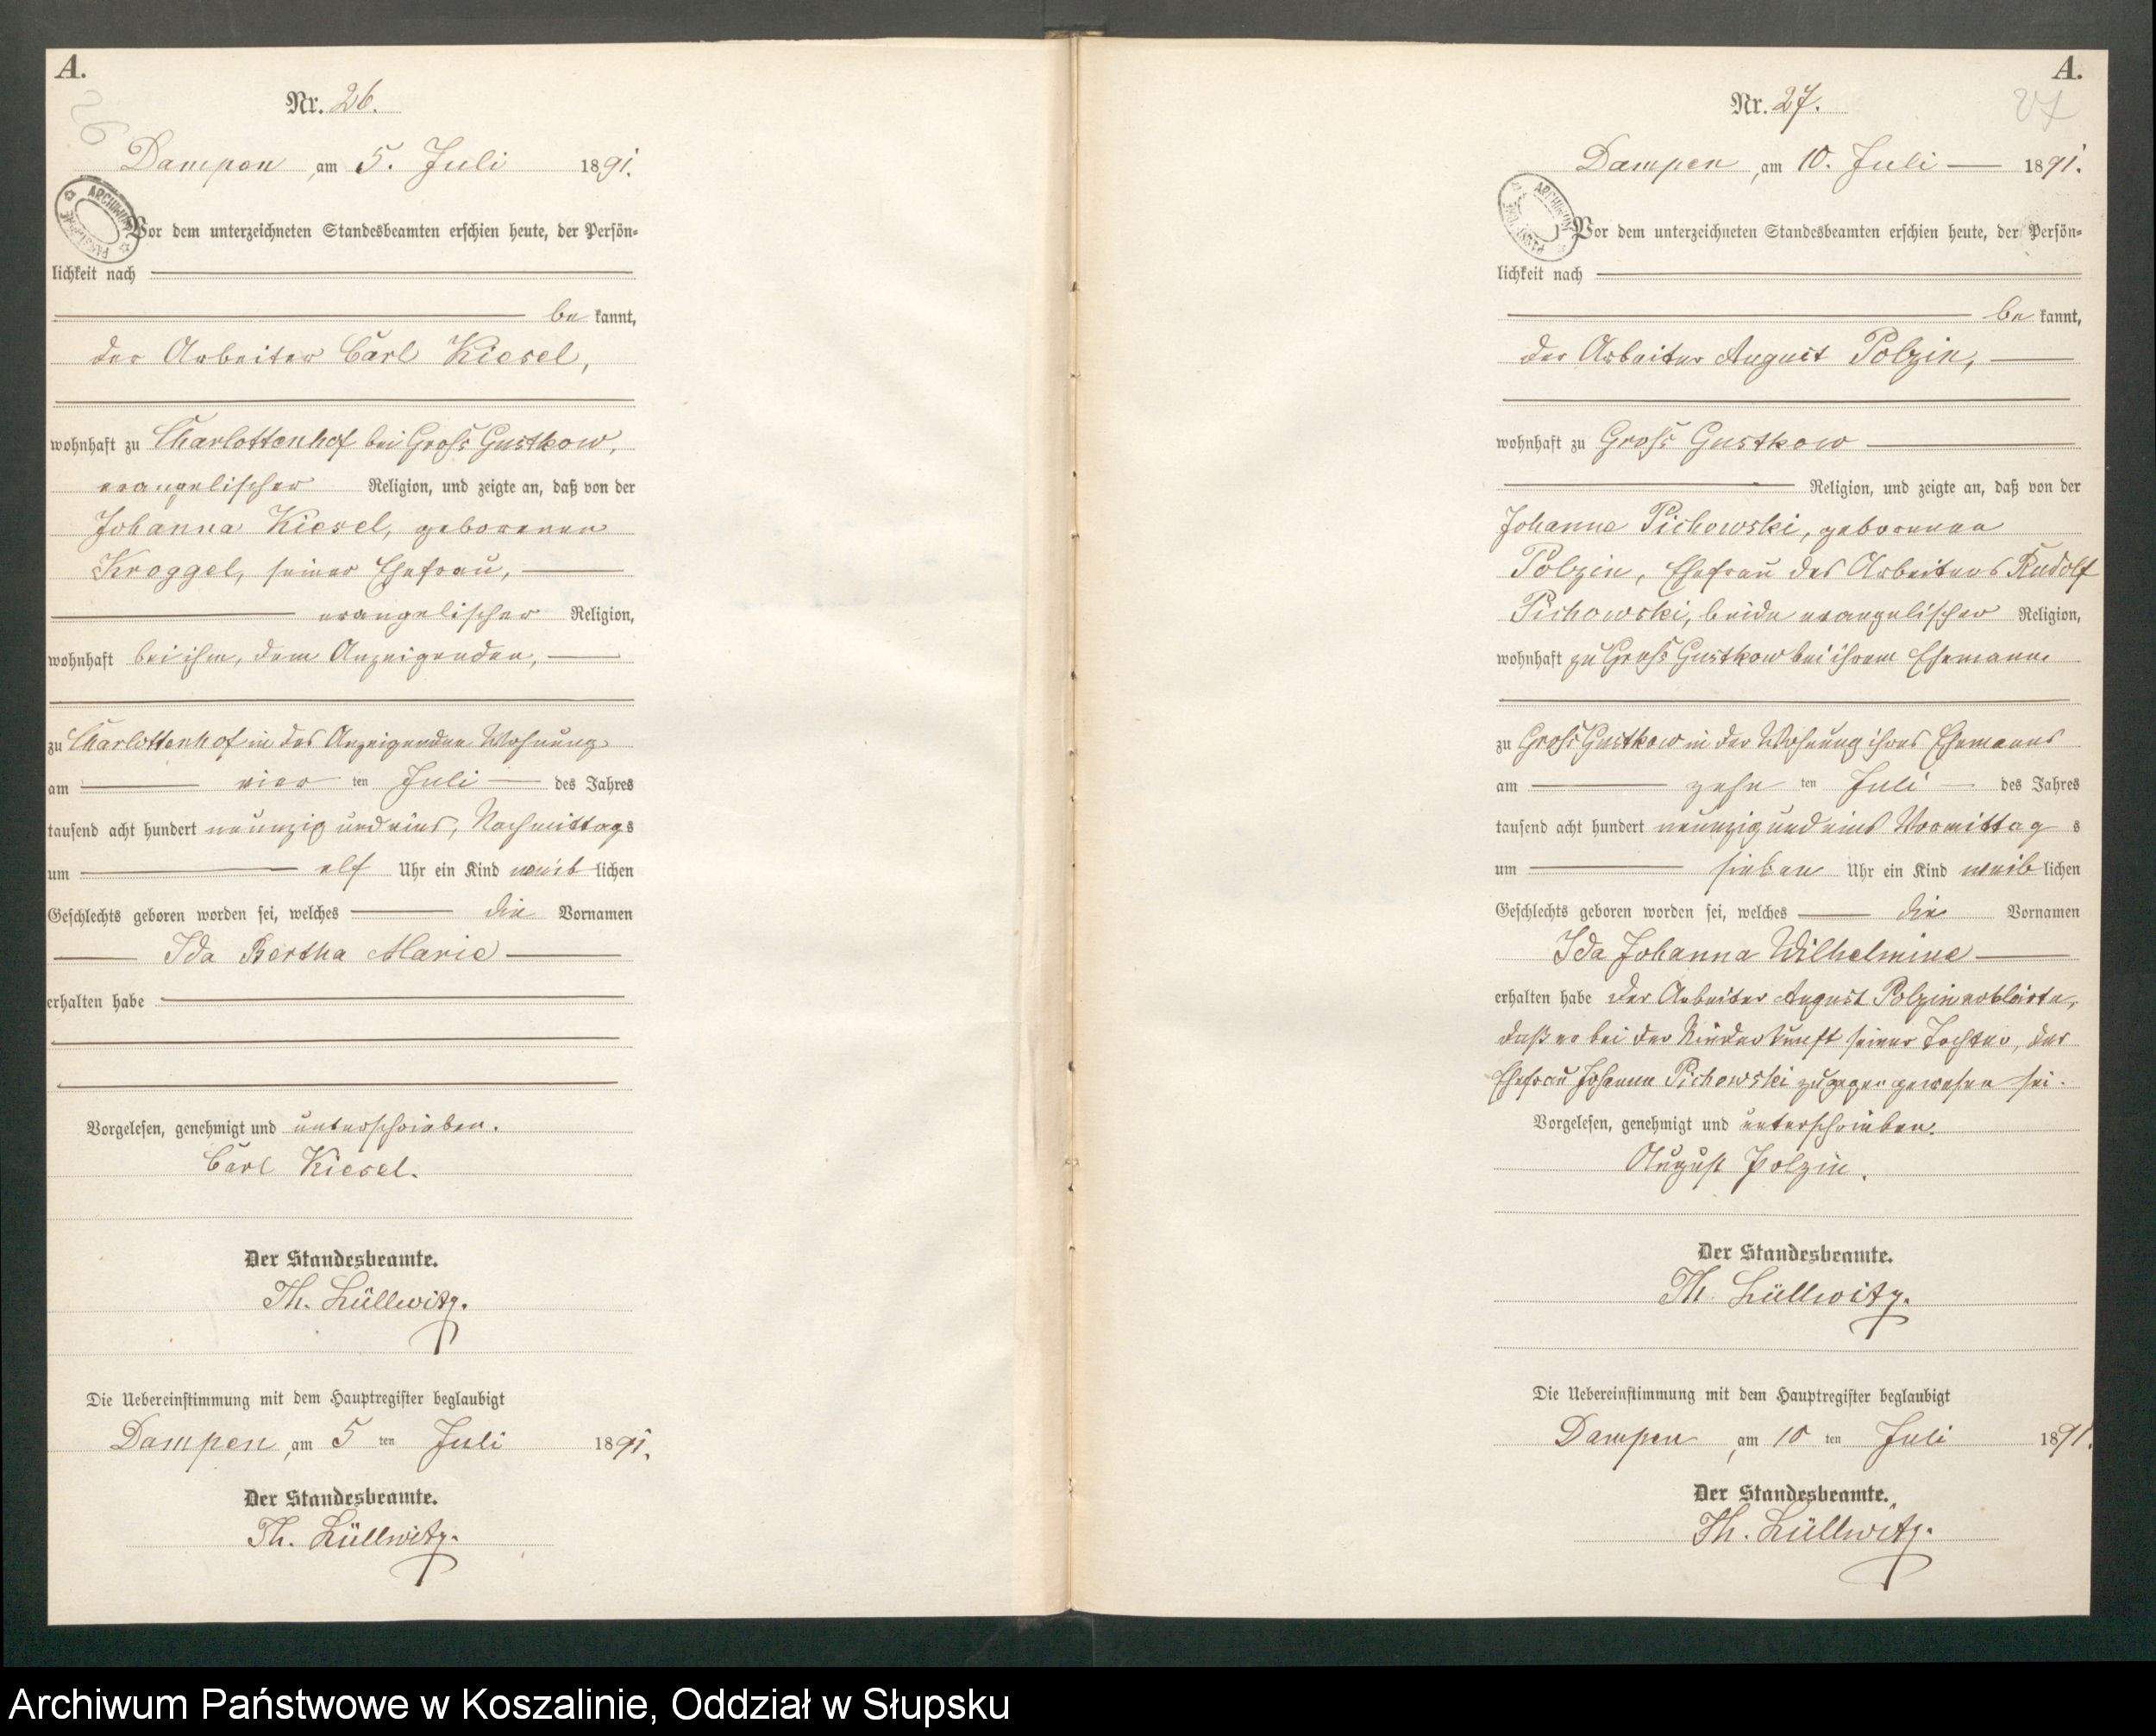 A.
Nr. 26.
26
Dampen, am 5. Juli 1891.
Vor dem unterzeichneten Standesbeamten erschien heute, der Persön=
lichkeit nach
be kannt,
der Arbeiter Carl Kiesel,
wohnhaft zu Charlottenhof bei Gross Gustkow,
evangelischer Religion, und zeigte an, daß von der
Johanna Kiesel, geborenen
Kroggel, seiner Ehefrau,
evangelischer Religion,
wohnhaft bei ihm, dem Anzeigenden,
zu Charlottenhof in des Anzeigenden Wohnung
am vier ten Juli des Jahres
tausend acht hundert neunzig und eins, Nachmittags
um elf Uhr ein Kind weib lichen
Geschlechts geboren worden sei, welches die Vornamen
Ida Bertha Marie
erhalten habe
Vorgelesen, genehmigt und unterschrieben.
Carl Kiesel.
Der Standesbeamte.
Th. Lüllwitz.
Die Uebereinstimmung mit dem Hauptregister beglaubigt
Dampen, am 5 ten Juli 1891.
Der Standesbeamte.
Th. Lüllwitz.
A.
Nr. 27.
27
Dampen, am 10. Juli 1891.
Vor dem unterzeichneten Standesbeamten erschien heute, der Persön=
lichkeit nach
be kannt,
der Arbeiter August Polzin,
wohnhaft zu Gross Gustkow
Religion, und zeigte an, daß von der
Johanne Pichowski, geborenen
Polzin, Ehefrau des Arbeiters Rudolf
Pichowski, beide evangelischer Religion,
wohnhaft zu Gross Gustkow bei ihrem Ehemanne
zu Gross Gustkow in der Wohnung ihres Ehemanns
am zehn ten Juli des Jahres
tausend acht hundert neunzig und eins Vormittag s
um sieben Uhr ein Kind weib lichen
Geschlechts geboren worden sei, welches die Vornamen
Ida Johanna Wilhelmine
erhalten habe Der Arbeiter August Polzin erklärte,
daß er bei der Niederkunft seiner Tochter, der
Ehefrau Johanna Pichowski zugegen gewesen sei.
Vorgelesen, genehmigt und unterschrieben.
August Polzin.
Der Standesbeamte.
Th. Lüllwitz.
Die Uebereinstimmung mit dem Hauptregister beglaubigt
Dampen, am 10 ten Juli 1891.
Der Standesbeamte.
Th. Lüllwitz.
Archiwum Państwowe w Koszalinie, Oddział w Słupsku